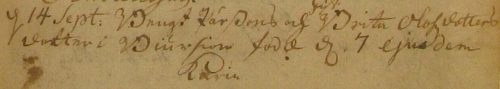 d 14 Sept: Bengt Pärsons och Brita Olofsdotters
dotter i Biursion född d. 7 ejusdem
Karin